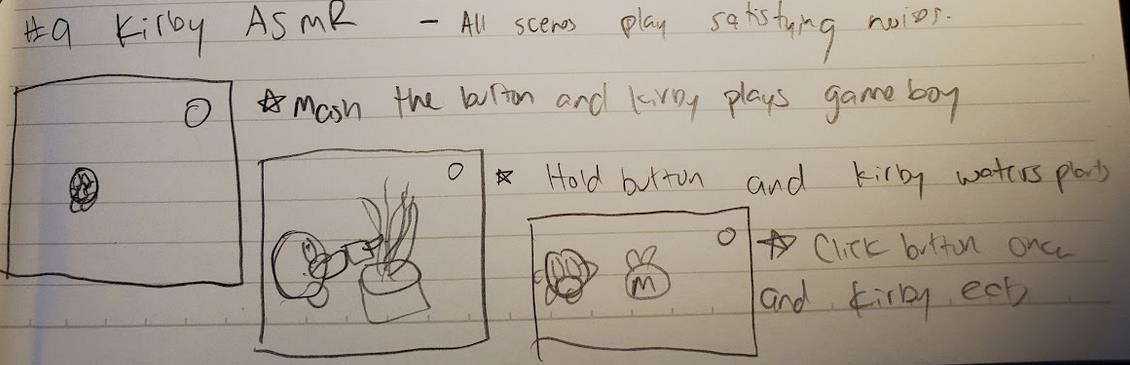 #9 Kirby ASMR - All scenes play satisfying noises.
☆ Mash the button and kirby plays gameboy
☆ Hold button and kirby waters plants
☆ Click button once
and kirby eats
M